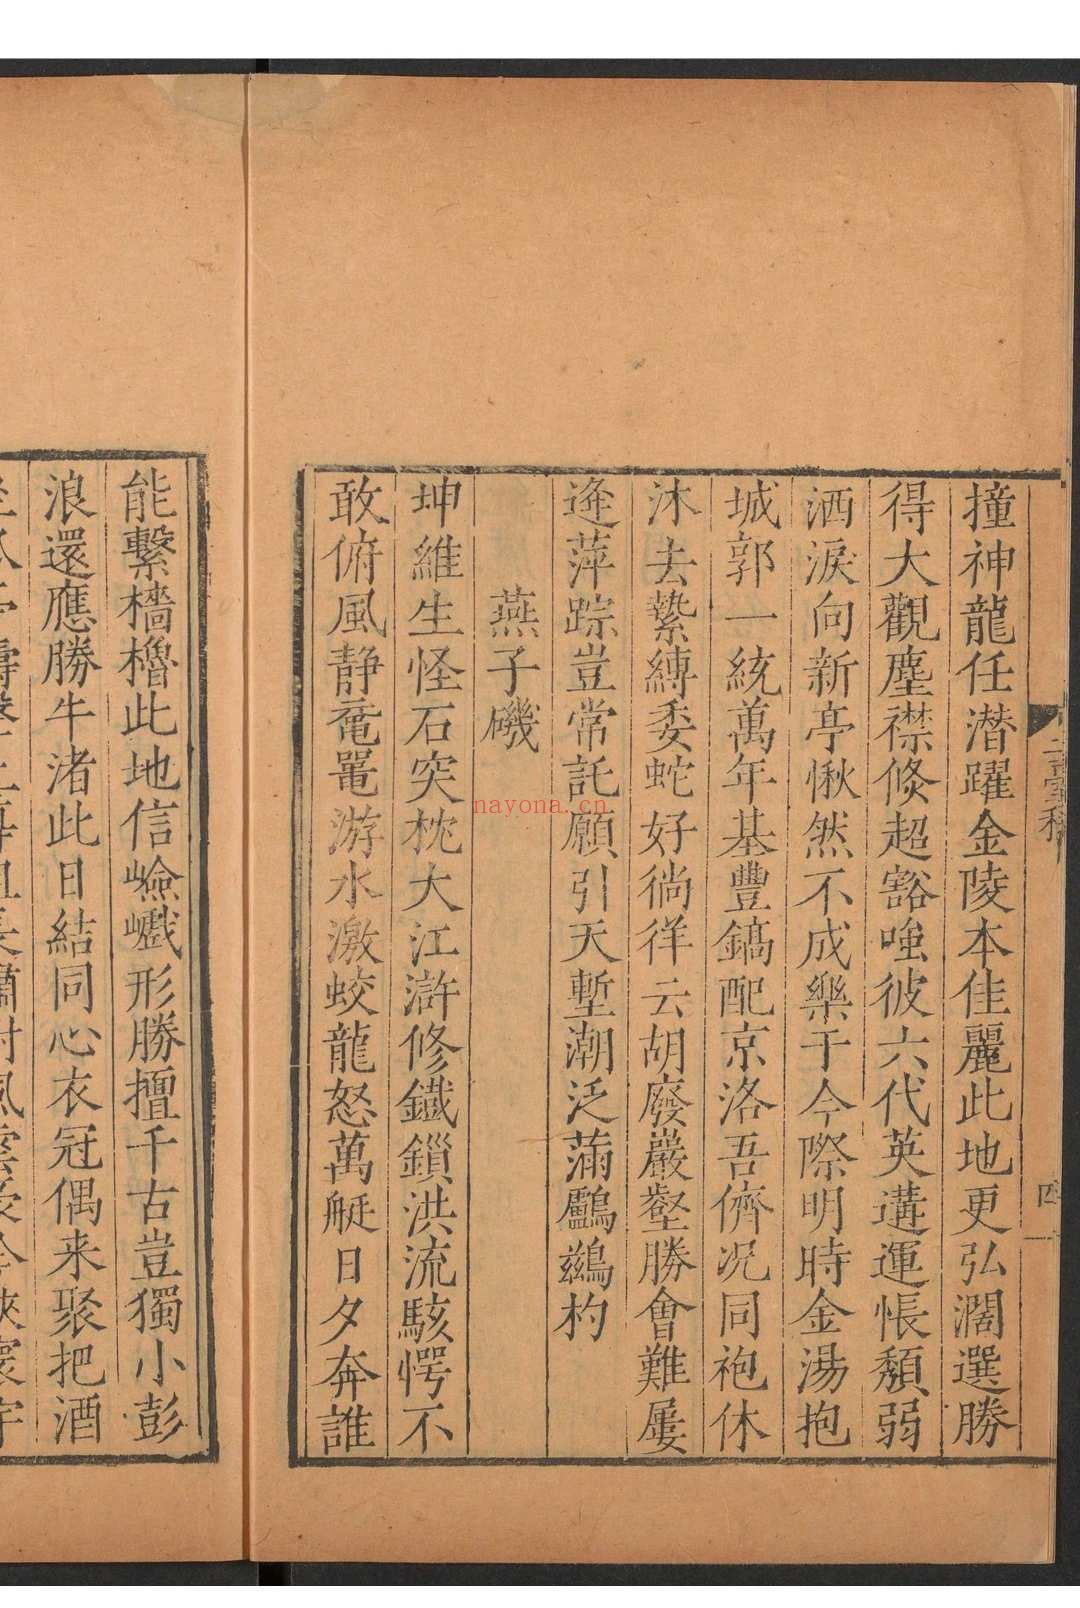 撞神龍任潛躍金陵本佳麗此地更弘濶選勝
得大觀塵襟倐超豁嗤彼六代英遘運悵頹弱
洒淚向新亭愀然不成樂于今際明時金湯抱
城郭一統萬年基豐鎬配京洛吾儕况同袍休
沐去縶縛委蛇好徜徉云胡廢巖壑勝會難屢
逄萍踪豈常託願引天塹潮泛蒲鸕鷀杓
燕子磯
坤維生怪石突枕大江滸修鐵鎖洪流駭愕不
敢俯風静黿鼍游水激蛟龍怒萬艇日夕奔誰
能繫檣櫓此地信嶮巇形勝擅千古豈獨小彭
浪還應勝牛渚此日結同心衣冠偶来聚把酒
四
nayona.cn